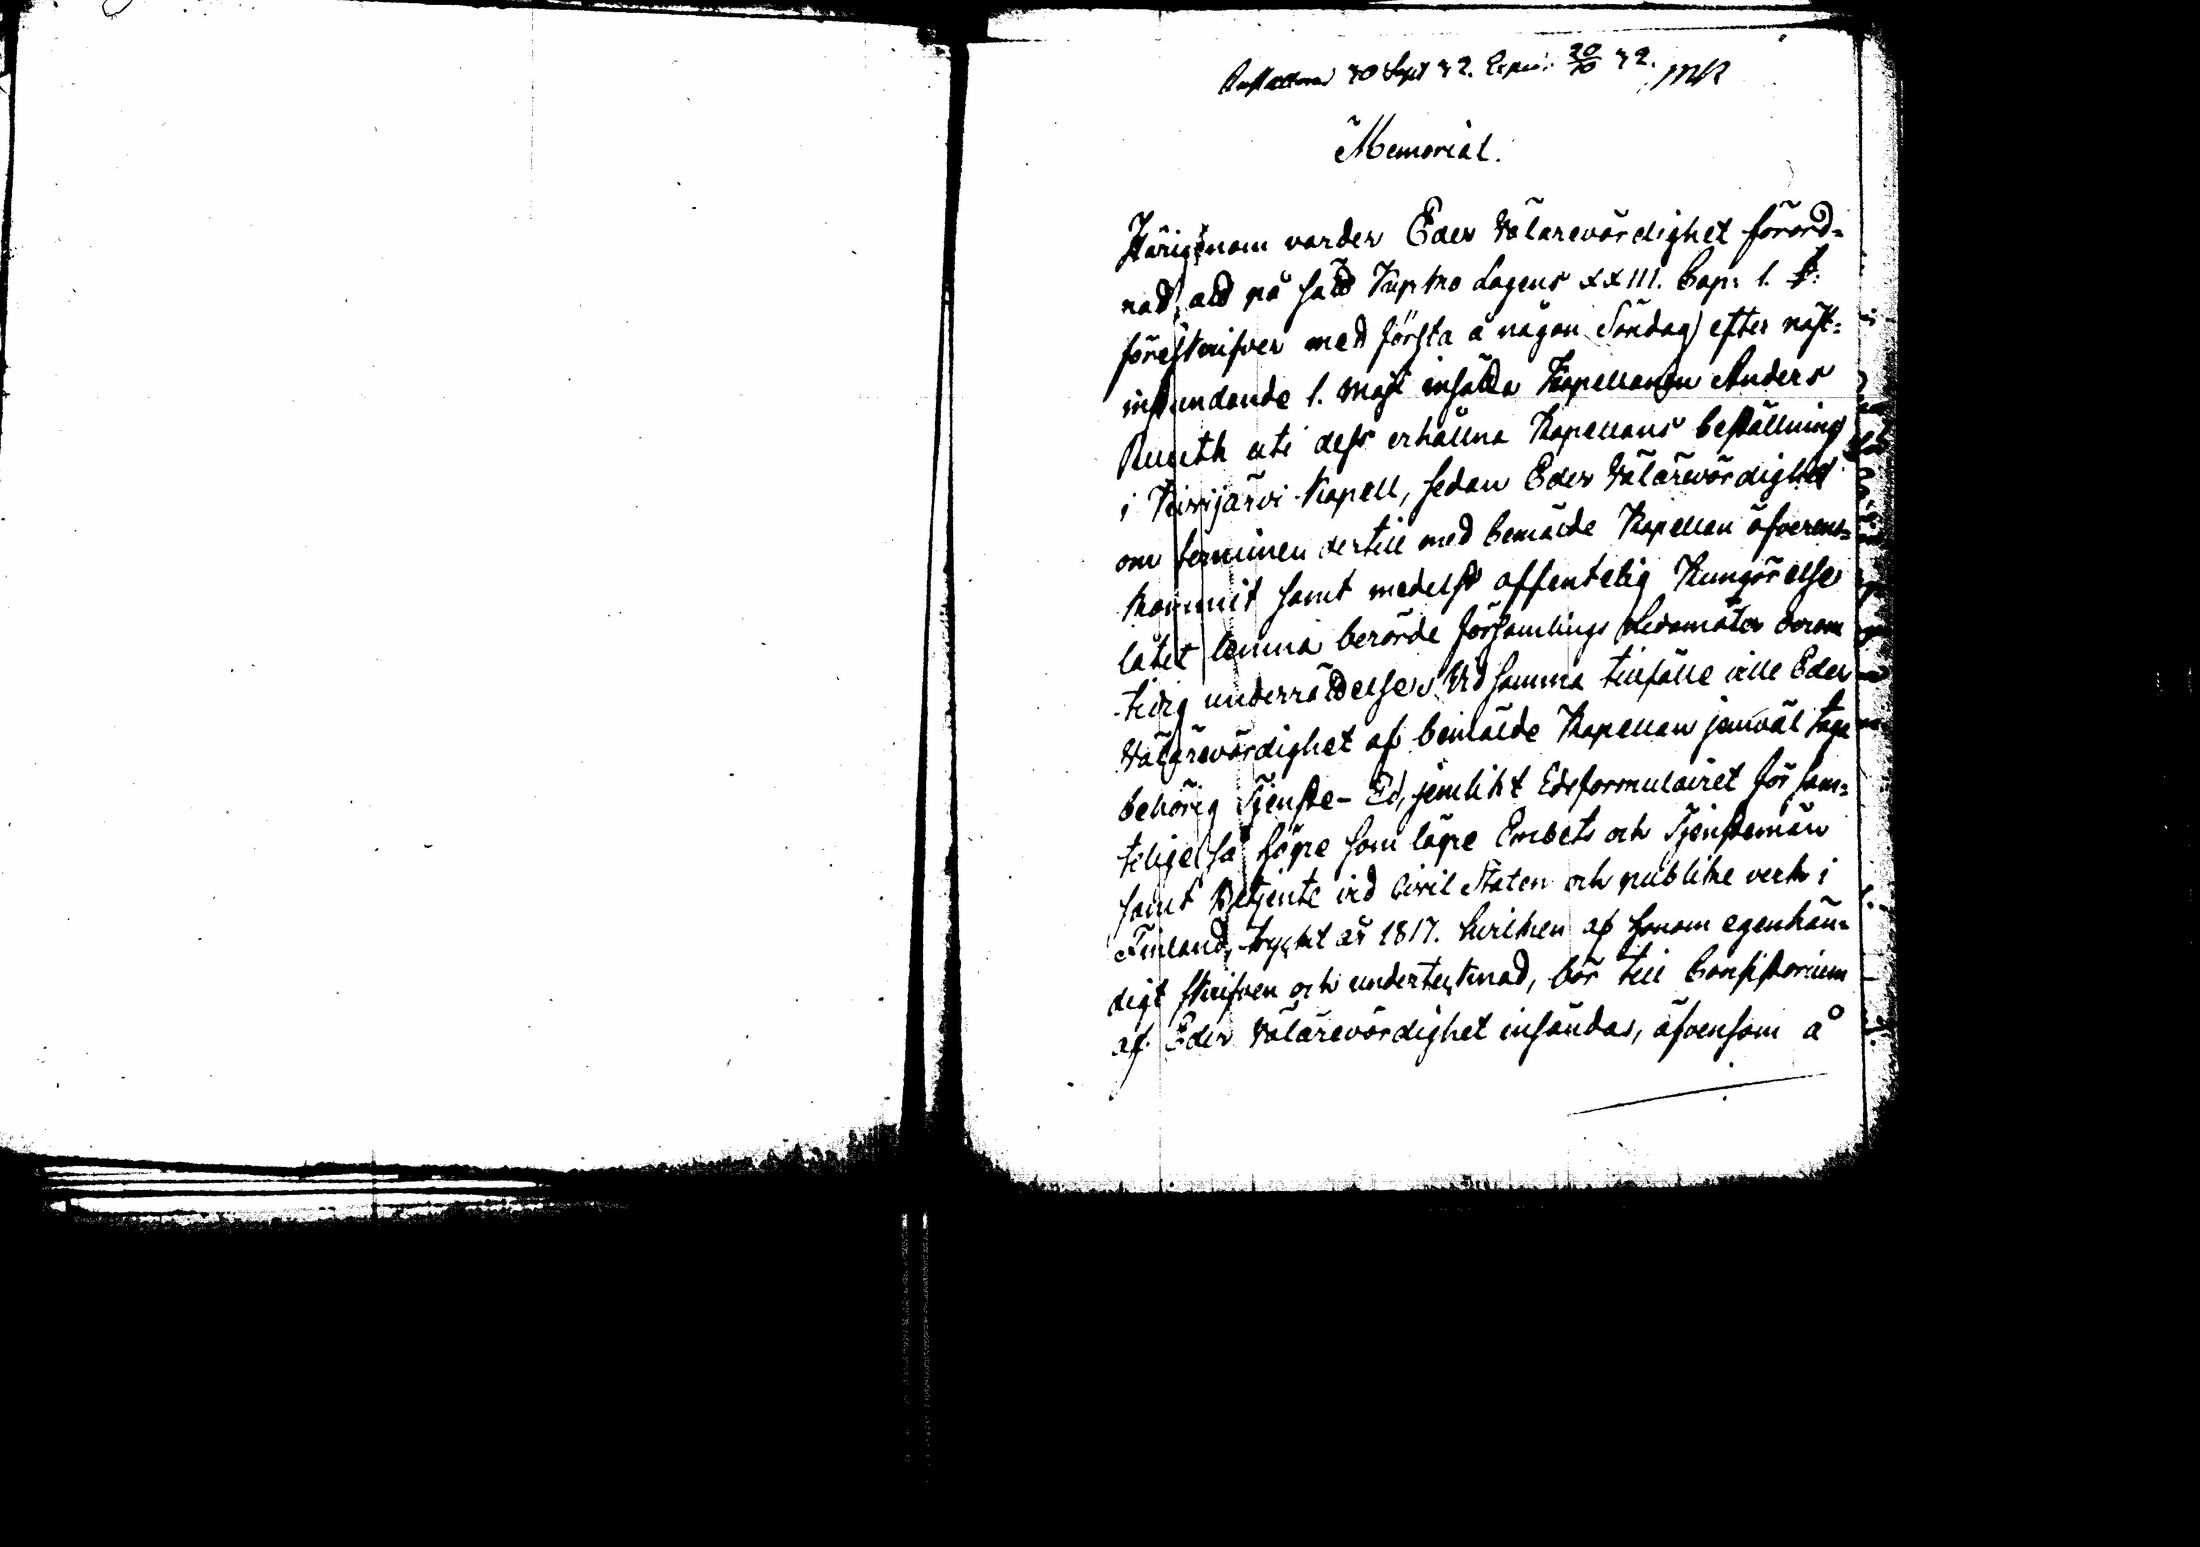 30 Sept 32. 20/10 32.
Memorial.
Härigenom varder Eder Välärevördighet förord-
nad, att på sätt Kyrko Lagens XXIII. Cap: 1. §.
föreskrifver med första å någon Söndag efter näst-
instundande 1. Maji insätta Kapellanen Anders
Ruuth uti dess erhållna Kapellans beställning
i Kivijärvi Kapell, sedan Eder Välärevördighet
om terminen dertill med bemälde Kapellan öfverens-
kommit samt medelst offentelig Kungörelse
låtit lemna berörde Församlings Ledamöter derom
tidig underrättelse. Vid samma tillfälle ville Eder
Välärevördighet af bemälde Kapellan jemväl taga
behörig Tjenste-Ed, jemlikt Edsformulairet för sam-
telige så högre som lägre Embets och Tjenstemän
samt Betjente vid Civil Staten och publike verk i
Finland, tryckt år 1817. hvilken af honom egenhän-
digt skrifven och undertecknad, bör till Consistorium
af Eder Välärevördighet insändas, äfvensom å